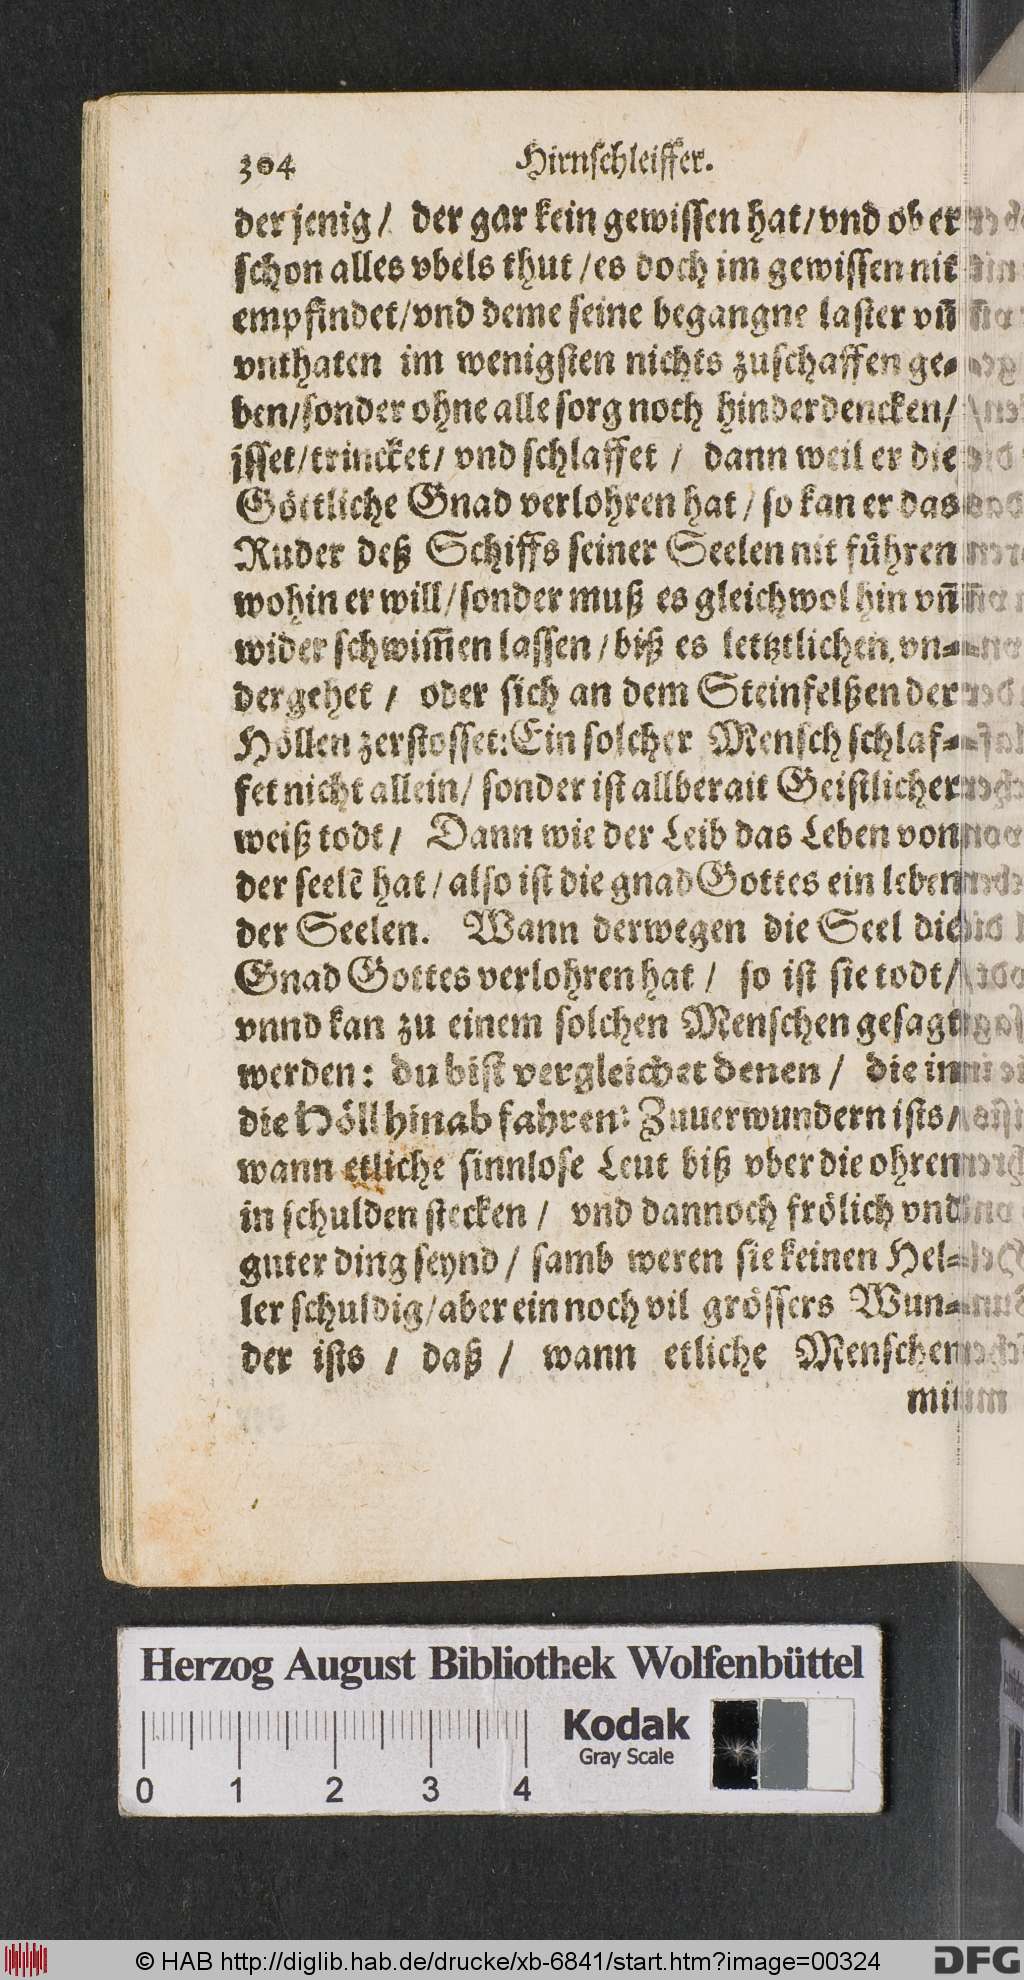 304 Hirnschleiffer.
der jenig / der gar kein gewissen hat / vnd ob er
schon alles vbels thut / es doch im gewissen nit
empfindet / vnd deme seine begangne laster vñ
vnthaten im wenigsten nichts zuschaffen ge-
ben / sonder ohne alle sorg noch hinderdencken /
jsset / trincket / vnd schlaffet / dann weil er die
Göttliche Gnad verlohren hat / so kan er das
Ruder deß Schiffs seiner Seelen nit führen
wohin er will / sonder muß es gleichwol hin vñ
wider schwim̃en lassen / biß es letztlichen vn-
dergehet / oder sich an dem Steinfelßen der
Höllen zerstosset: Ein solcher Mensch schlaf-
fet nicht allein / sonder ist allberait Geistlicher
weiß todt / Dann wie der Leib das Leben von
der seelẽ hat / also ist die gnad Gottes ein leben
der Seelen. Wann derwegen die Seel die
Gnad Gottes verlohren hat / so ist sie todt /
vnnd kan zu einem solchen Menschen gesagt
werden: du bist vergleichet denen / die in
die Höll hinab fahren: Zuuerwundern ists /
wann etliche sinnlose Leut biß vber die ohren
in schulden stecken / vnd dannoch frölich vnd
guter ding seynd / samb weren sie keinen Hel-
ler schuldig / aber ein noch vil grössers Wun-
der ists / daß / wann etliche Menschen
mit
Herzog August Bibliothek Wolfenbüttel
Kodak
Gray Scale
0 1 2 3 4
© HAB http://diglib.hab.de/drucke/xb-6841/start.htm?image=00324
DFG